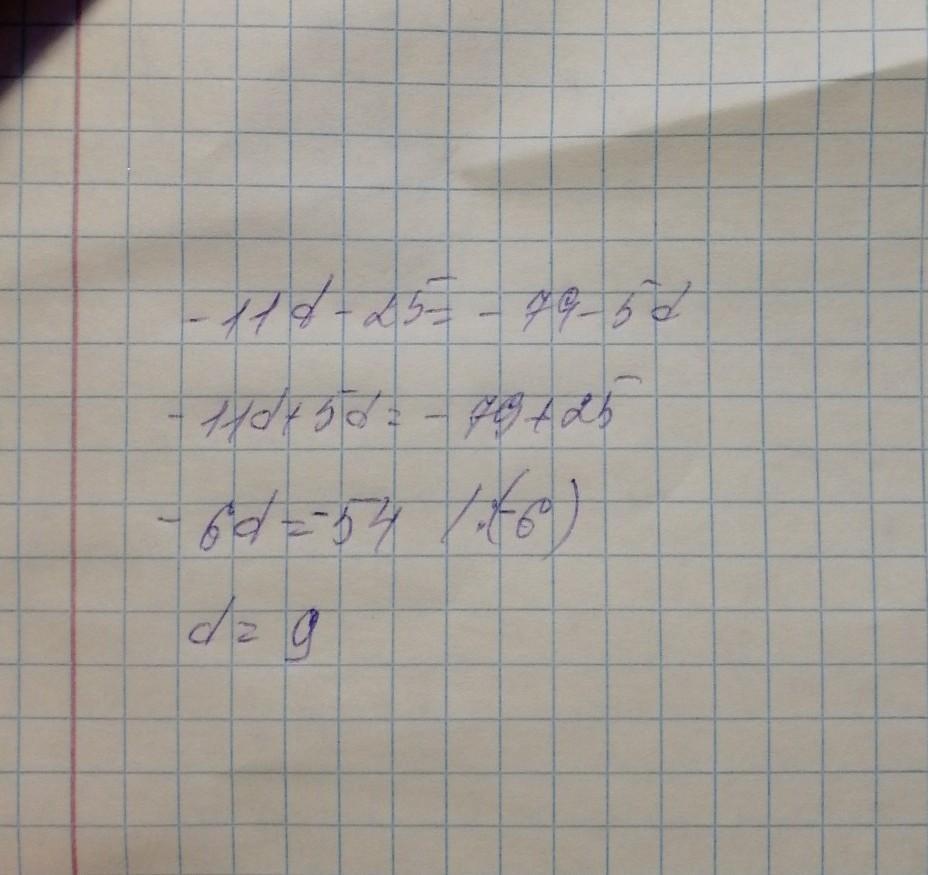 -11d-25=-79-5d
-11d+5d=-79+25
-6d=-54 /:(-6)
d=9